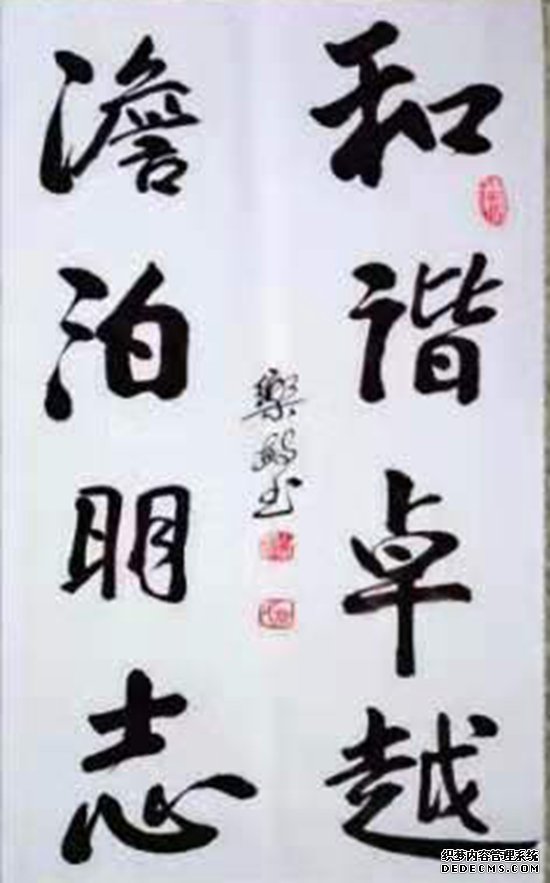 和谐卓越
澹泊明志
织梦内容管理系统
DEDECMS.COM